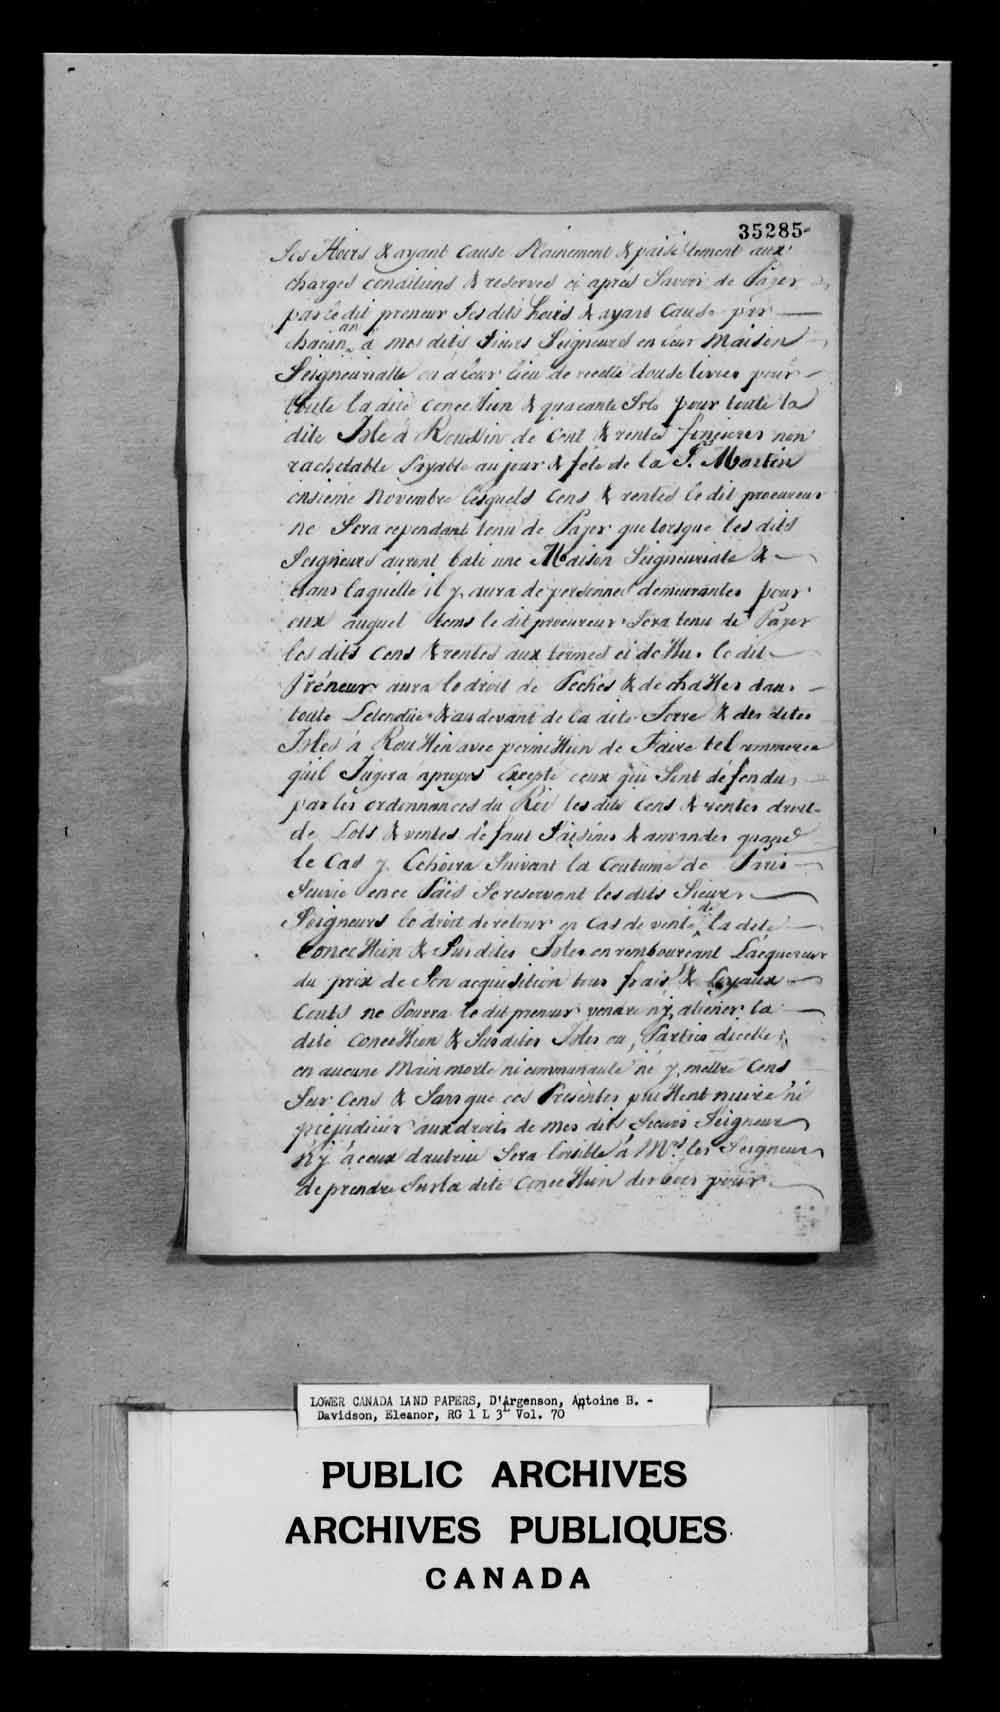 35285-
Ses Hoirs & ayant Cause Plainement & paisiblement aux
charges conditions & reserves ci apres Savoir de Payer
par le dit preneur Ses dits hoirs & ayant Cause par
chacun an à mes dits Sieurs Seigneurs en leur Maison
Seigneurialle ou à leur lieu de recette douse livres pour
toute la dite concession & quarante Sols pour toute la
dite Isle à Roussin de Cent & rentes foncieres non
rachetable Payable au jour & fete de la St. Martin
onsieme Novembre lesquels Cens & rentes le dit procureur
ne Sera cependant tenu de Payer que lorsque les dits
Seigneurs auront bati une Maison Seigneuriale &
dans laquelle il y aura de personnes demeurantes pour
eux auquel tems le dit procureur Sera tenu de Payer
les dits Cens & rentes aux termes ci dessus le dit
Préneur aura le droit de Peches & de chasses dans
toute Letendüe & au devant de la dite Terre & des dites
Isles à Roussin avec permission de Faire tel commerce
quil Jugera àpropos Excepté ceux qui Sont défendus
par les ordonnances du Roi les dits Cens & rentes droit
de Lots & ventes défaut Saisines & amandes quand
le Cas y Echoira Suivant la Coutume de Paris
Suivie ence Païs Se reservant les dits Sieurs
Seigneurs le droit de retour en Cas de vente de la dite
Concession & Susdites Isles en rembourcant Lacquereur
du prix de Son acquisition tous frais & Loyaux
Couts ne Pourra le dit preneur vendre ny aliener la
dite Concession & Susdites Isles ou Parties dicelle
en aucune Main morte ni communauté né y mettre Cens
Sur Cens & Sans que ces Présentes puissent nuire ni
préjudicier aux droits de mes dits Sieurs Seigneurs
N'y à ceux dautrui Sera loisible à Mrs. les Seigneurs
de prendre Sur la dite Concession des bois pour
LOWER CANADA LAND PAPERS, D'Argenson, Antoine B. -
Davidson, Eleanor, RG 1 L 3L Vol. 70
PUBLIC ARCHIVES
ARCHIVES PUBLIQUES
CANADA